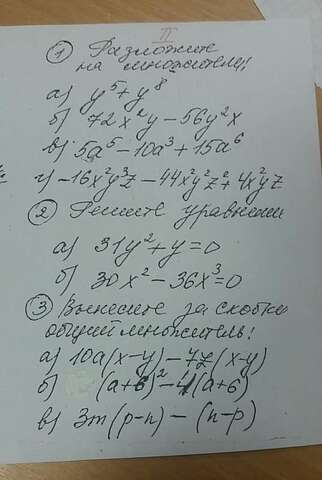 II
① Разложите
на множители!
а) y⁵ + y⁸
б) 72x²y − 56y²x
в) 5a⁵ − 10a³ + 15a⁶
г) −16x²y³z − 44x²y²z² + 4x²yz
② Решите уравнения
а) 31y² + y = 0
б) 30x² − 36x³ = 0
③ Вынесите за скобки
общий множитель!
а) 10a(x−y) − 7z(x−y)
б) (a+b)² − 4(a+b)
в) 3m(p−n) − (n−p)